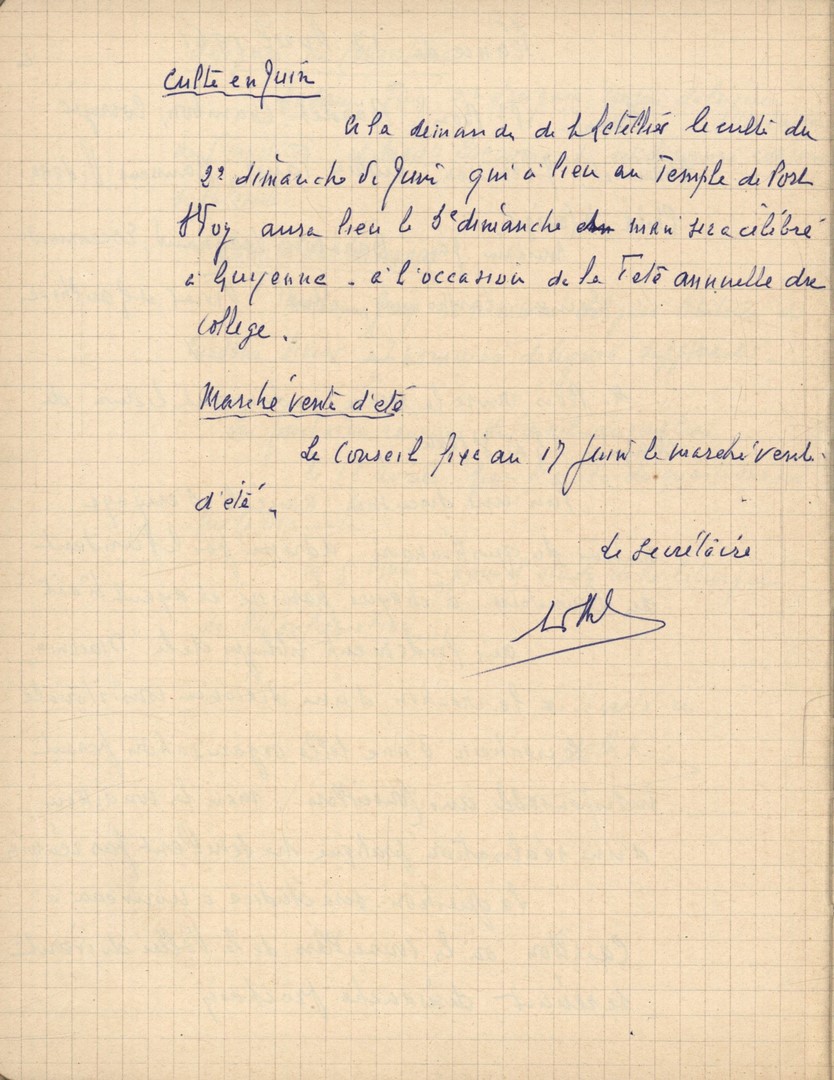 Culte en Juin
A la demande de le culte du
2e dimanche de Juin qui a lieu au Temple de Port
Ste Foy aura lieu le 3e dimanche mais sera célébré
à Guyenne. à l'occasion de la Fete annuelle du
College.
Marché vente d'été
Le Conseil fixe au 17 Juin le marché vente
d'été.
Le Secrétaire